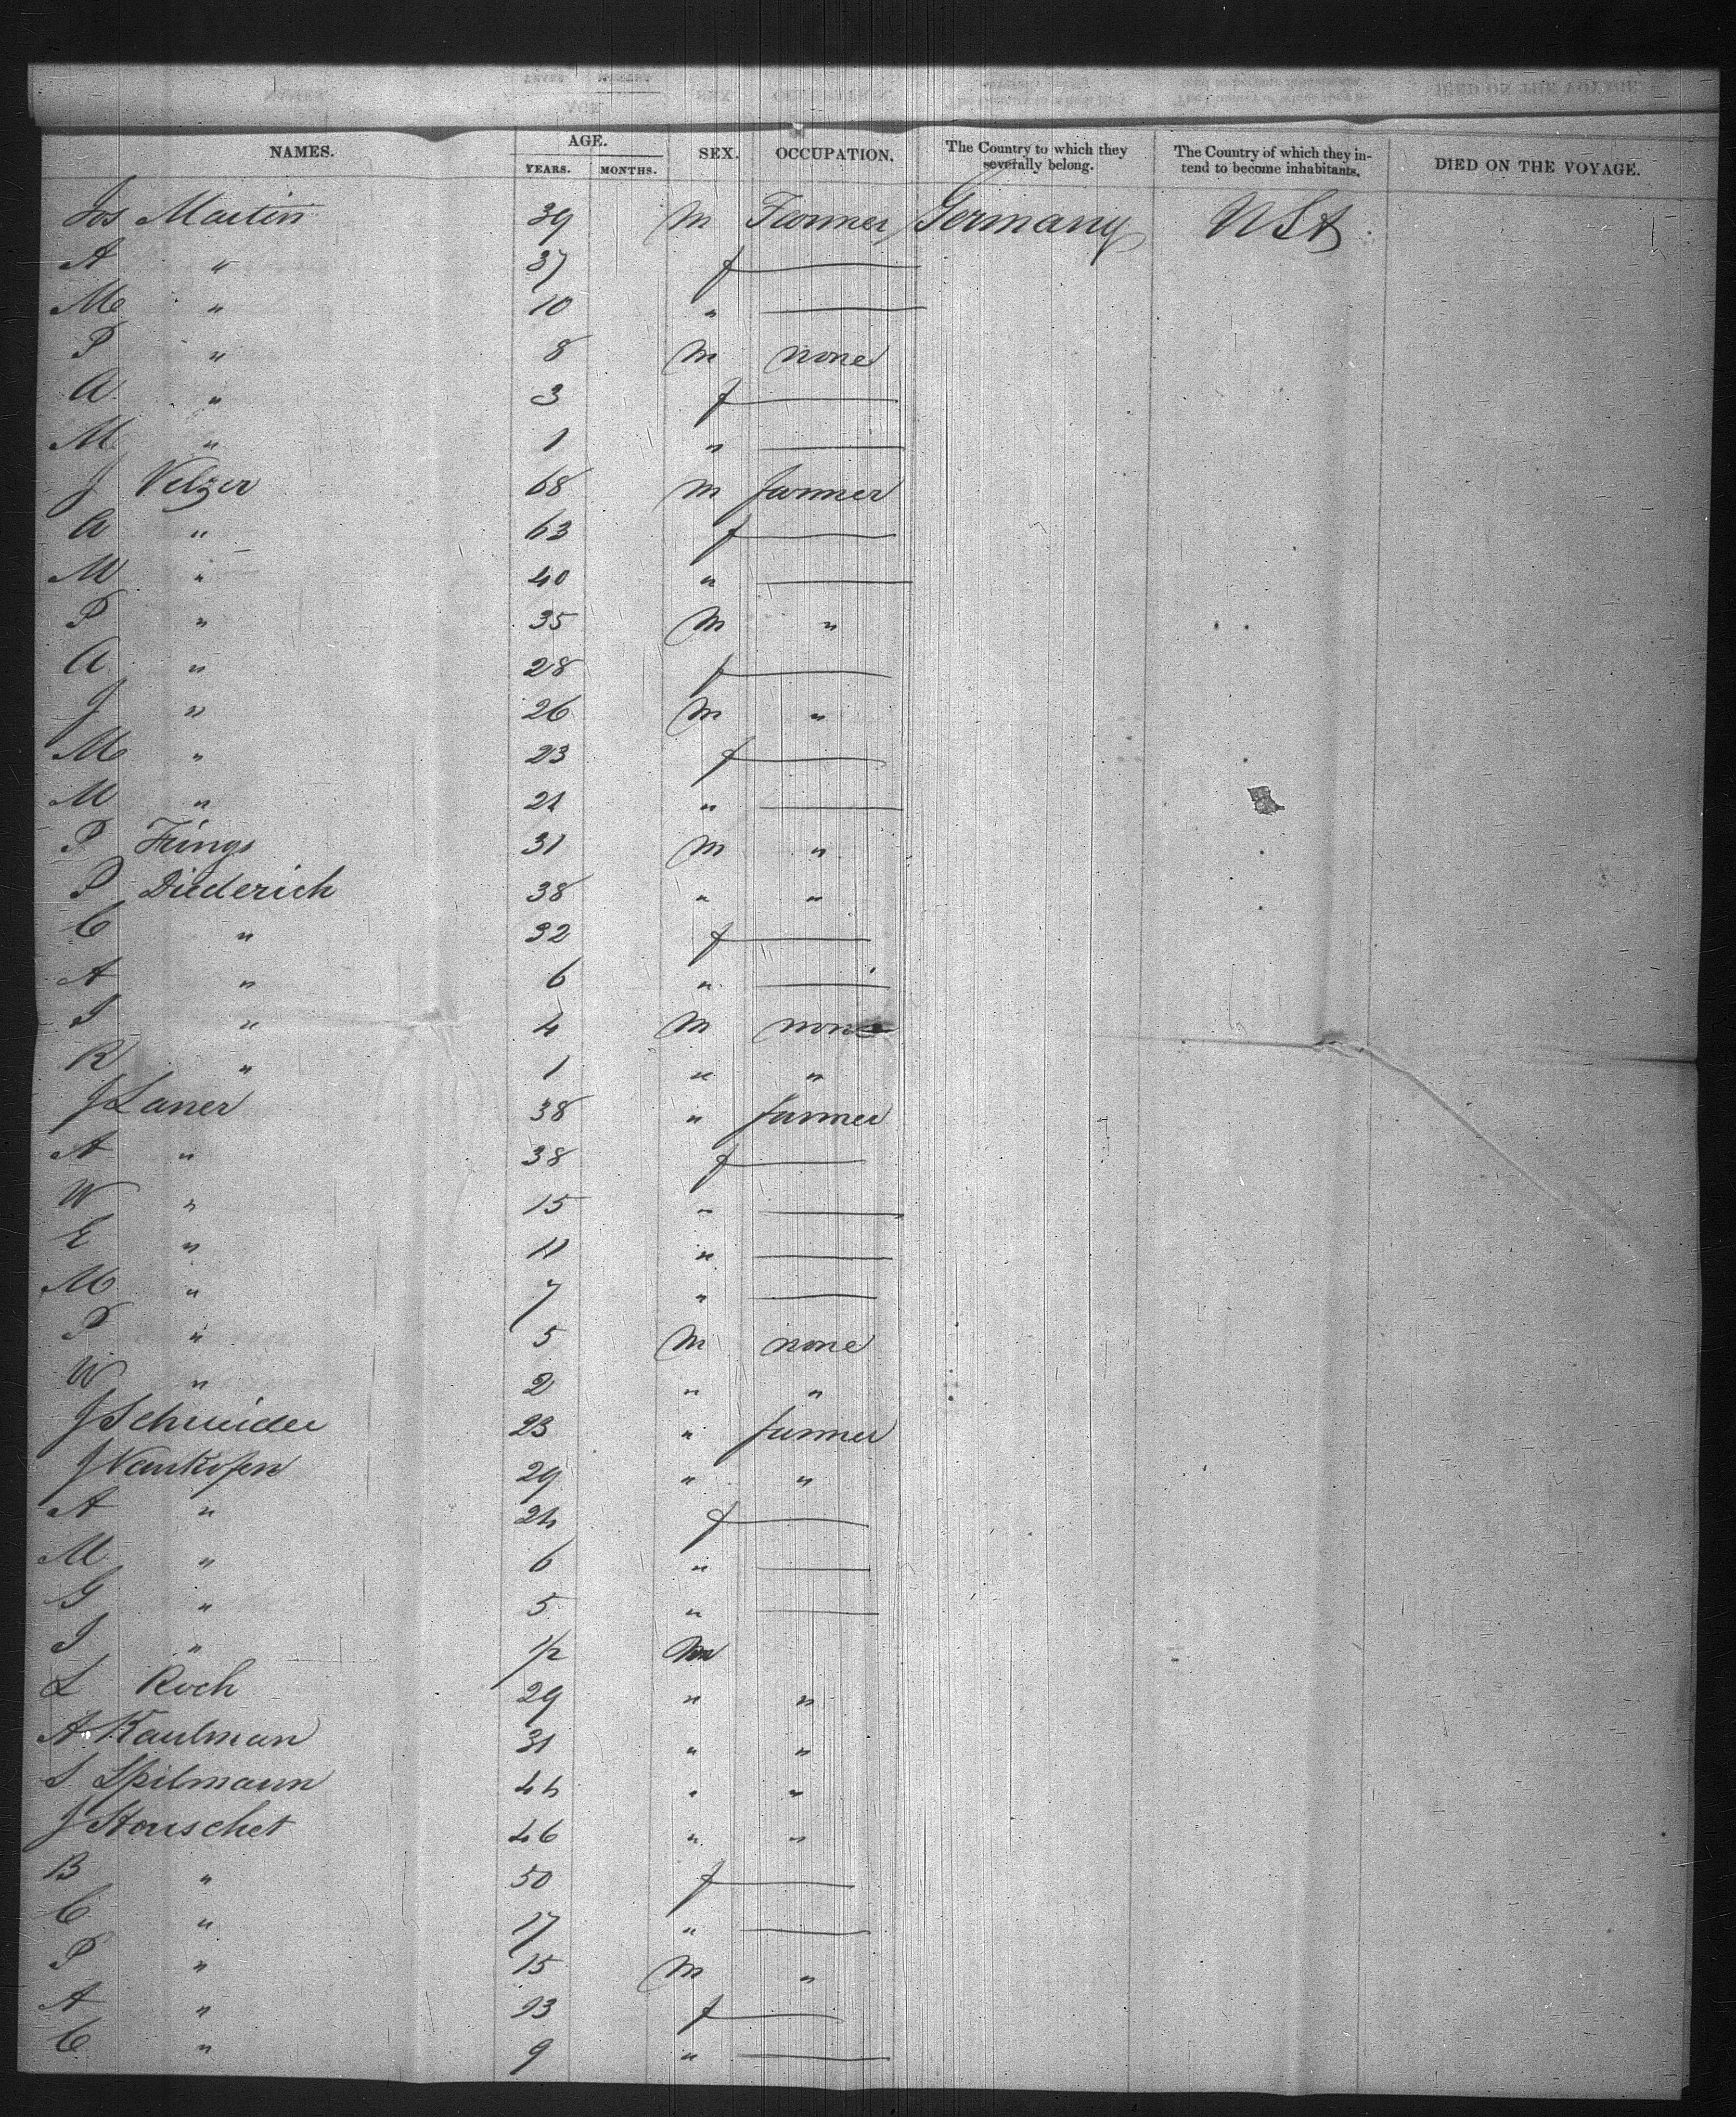 NAMES. AGE. SEX. OCCUPATION. The Country to which they severally belong. The Country of which they intend to become inhabitants. DIED ON THE VOYAGE.
YEARS. MONTHS.
Jos Martin 39 m Farmer Germany USA
A " 37 f —
M " 10 " —
P " 8 m none
A " 3 f —
M " 1 " —
J Velzer 68 m farmer
A " 63 f —
M " 40 " —
P " 35 m "
A " 28 f —
J " 26 m "
M " 23 f —
M " 21 " —
P Frings 31 m "
P Diederich 38 " "
C " 32 f —
A " 6 " —
J " 4 m none
R " 1 " "
J Laner 38 " farmer
A " 38 f —
W " 15 " —
E " 11 " —
M " 7 " —
P " 5 m none
W " 2 " "
J Schneider 23 " farmer
J 29 " "
A " 24 f —
M " 6 " —
G " 5 " —
J " 1/2 m
L Koch 29 " "
A Kaulman 31 " "
S Spilmann 44 " "
J Stouschet 46 " "
B " 50 f —
C " 17 " —
P " 15 m "
A " 13 f —
C " 9 " —